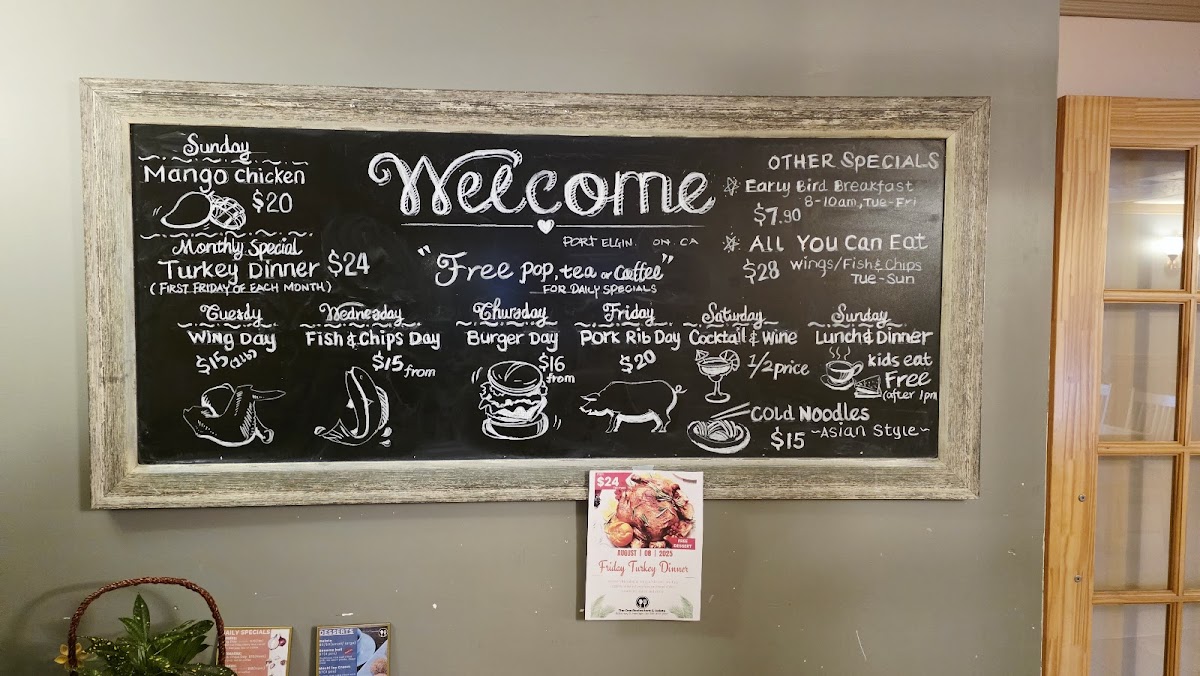 Sunday
Mango Chicken
$20
Monthly Special
Turkey Dinner $24
(FIRST FRIDAY OF EACH MONTH)
Welcome
PORT ELGIN. ON. CA
"Free pop, tea or Coffee"
FOR DAILY SPECIALS
OTHER SPECIALS
Early Bird Breakfast
8-10am, Tue-Fri
$7.90
All You Can Eat
$28 Wings/Fish & Chips
Tue-Sun
Tuesdy
Wing Day
$15 (1lb)
Wednesday
Fish & Chips Day
$15 from
Thursday
Burger Day
$16
from
Friday
Pork Rib Day
$20
Saturday
Cocktail & Wine
1/2 price
Cold Noodles
$15 ~Asian Style~
Sunday
Lunch & Dinner
kids eat
Free
(after 1pm
$24
FREE
DESSERT
AUGUST | 08 | 2025
Friday Turkey Dinner
DAILY SPECIALS
DESSERTS